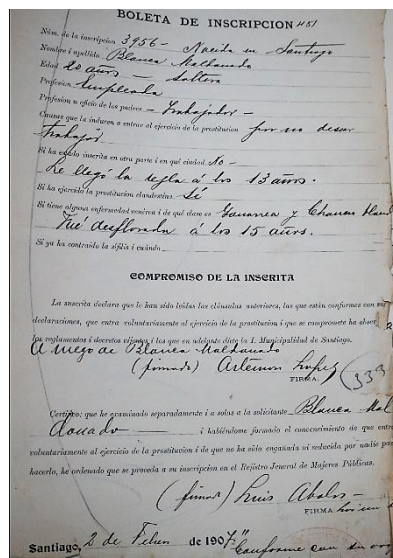 BOLETA DE INSCRIPCION 451
Núm. de la inscripción 3956 - Nacida en Santiago
Nombre i apellido Blanca Maldonado
Edad 20 años - Soltera
Profesion Empleada
Profesion u oficio de los padres - Trabajador -
Causas que la inducen a entrar al ejercicio de la prostitucion por no desear
trabajar
Si ha estado inscrita en otra parte i en qué ciudad No -
Le llegó la regla á los 13 años.
Si ha ejercido la prostitucion clandestina Sí
Si tiene alguna enfermedad venérea i de qué clase es Gonorrea y Chancro bland
Fué desflorada á los 15 años.
Si ya ha contraido la sífilis i cuándo
COMPROMISO DE LA INSCRITA
La suscrita declara que le han sido leidas las cláusulas anteriores, las que están conformes con su
declaraciones, que entra voluntariamente al ejercicio de la prostitucion i que se compromete ha obede
los reglamentos i decretos vijentes i los que en adelante dicte la I. Municipalidad de Santiago.
A ruego de Blanca Maldonado
(firmado) Artemon Lopez
FIRMA. 333
Certifico: que he examinado separadamente i a solas a la solicitante Blanca Mal
donado i habiéndome formado el convencimiento de que entra
voluntariamente al ejercicio de la prostitucion i de que no ha sido engañada ni seducida por nadie para
hacerlo, he ordenado que se proceda a su inscripcion en el Rejistro Jeneral de Mujeres Públicas.
(firmado) Luis Abalos -
FIRMA
Santiago, 2 de Febr de 1907."
Conforme con su